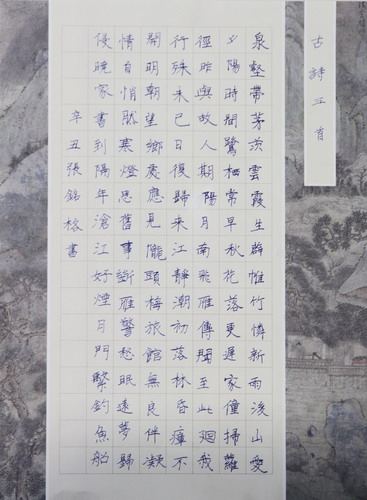 古詩三首
泉壑帶茅茨雲霞生薜帷竹憐新雨後山愛
夕陽時閒鷺棲常早秋花落更遲家僮掃蘿
徑昨與故人期陽月南飛雁傳聞至此迴我
行殊未已日復歸来江靜潮初落林昏瘴不
開明朝望鄉處應見隴頭梅旅館無良伴凝
情自悄然寒燈思舊事斷雁警愁眠遠夢歸
侵晚家書到隔年滄江好煙月門繫釣魚船
辛丑張銘榕書